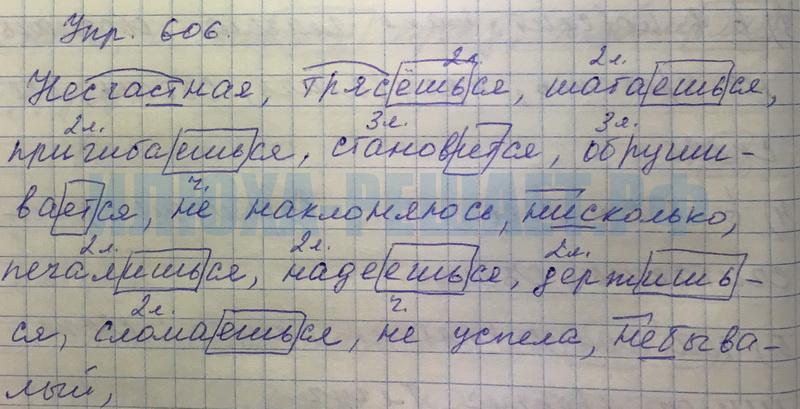 Упр. 606.
Несчастная, трясёшься, шатаешься,
пригибаешься, становится, обруши-
вается, не наклоняюсь, нисколько,
печалишься, надеешься, держишь-
ся, сломаешься, не успела, небыва-
лый,
2л. 2л.
2л. 3л. 3л.
ч.
2л. 2л. 2л.
2л. ч.
ИЛЮХА РЕШАЕТ.РФ